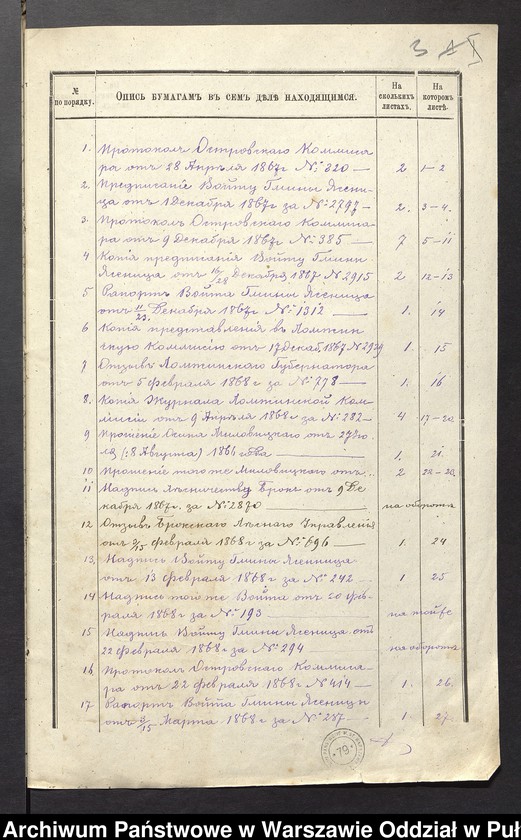 3
№
по порядку.
Опись бумагамъ въ семъ дѣлѣ находящимся.
На
сколькихъ
листахъ.
На
которомъ
листѣ.
1. Протоколъ Островскаго Коммиса
ра отъ 28 Апрѣля 1867 г № 320 — 2 1–2
2. Предписаніе Войту Гмины Ясени-
ца отъ 1 Декабря 1867 г за № 2797 — 2. 3–4.
3. Протоколъ Островскаго Коммиса-
ра отъ 9 Декабря 1867 г. № 385 — 7 5–11
4 Копія предписанія Войту Гмины
Ясеница отъ 16/28 Декабря 1867 № 2915 2 12–13
5 Рапортъ Войта Гмины Ясеница
отъ 11/23 Декабря 1867 г. № 1312 — 1. 14
6 Копія представленія въ Ломжин
скую Коммисію отъ 17 Декаб. 1867 № 2929 1. 15
7 Отзывъ Ломжинскаго Губернатора
отъ 5 февраля 1868 г за № 778 — 1. 16
8. Копія Журнала Ломжинской Ком-
мисіи отъ 9 Апрѣля 1868 г за № 282 — 4 17–20
9 Прошеніе Осипа Миловицкаго отъ 27 Ію
ля (: 8 Августа) 1864 года — 1. 21.
10 Прошеніе того же Миловицкаго отъ .. 2 22–23
11 Надпись Лѣсничеству Брокъ отъ 9 Де
кабря 1867 г. за № 2870 — на оборотѣ
12 Отзывъ Брокскаго Лѣснаго Управленія
отъ 3/15 февраля 1868 г за № 696 — 1. 24
13. Надпись Войту Гмины Ясеница
отъ 13 февраля 1868 г за № 242 — 1 25
14 Надпись того же Войта отъ 20 Фев-
раля 1868 г за № 193 на той же
15 Надпись Войту Гмины Ясеница отъ
22 февраля 1868 г за № 294 на оборотѣ
16. Протоколъ Островскаго Коммиса-
ра отъ 22 февраля 1868 г № 414 — 1. 26.
17. Рапортъ Войта Гмины Ясеница
отъ 3/15 Марта 1868 г за № 287 — 1 27.
79
Archiwum Państwowe w Warszawie Oddział w Puł